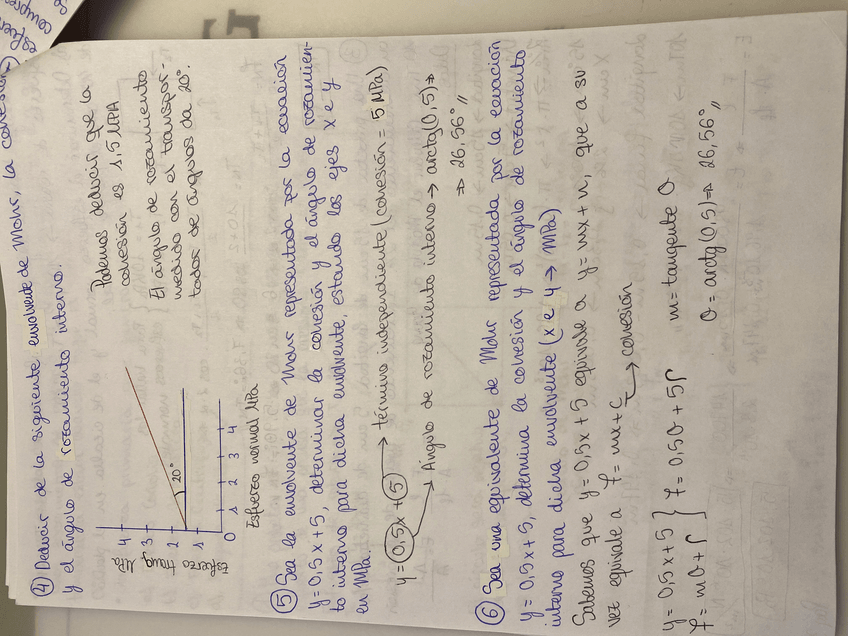 ④ Deducir de la siguiente envolvente de Mohr, la cohesión
y el ángulo de rozamiento interno.
Esfuerzo tang. MPa
4
3
2
1
0
1 2 3 4
20°
Esfuerzo normal MPa
Podemos deducir que la
cohesión es 1,5 MPA
El ángulo de rozamiento
medido con el transpor-
tador de ángulos da 20°.
⑤ Sea la envolvente de Mohr representada por la ecuación
y = 0,5x + 5, determinar la cohesión y el ángulo de rozamien-
to interno para dicha envolvente, estando los ejes x e y
en MPa.
y = 0,5x + 5 → término independiente (cohesión = 5 MPa)
→ Ángulo de rozamiento interno → arctg(0,5) ⇒
⇒ 26,56° //
⑥ Sea una equivalente de Mohr representada por la ecuación
y = 0,5x + 5, determina la cohesión y el ángulo de rozamiento
interno para dicha envolvente (x e y → MPa)
Sabemos que y = 0,5x + 5 equivale a y = mx + n, que a su
vez equivale a f = mx + c
→ cohesión
y = 0,5x + 5
f = mσ + r } f = 0,5σ + 5r m = tangente σ
σ = arctg(0,5) ⇒ 26,56° //